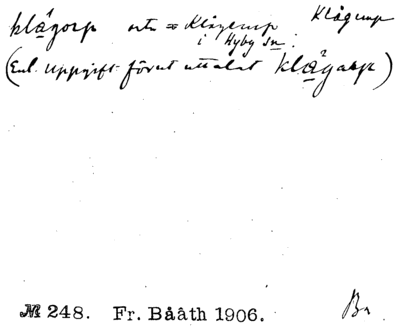 klågorp uts = Klågerup Klågerup
i Hyby sn.
(Enl. uppgift förut uttalat klågarp)
№ 248. Fr. Bååth 1906. Ba